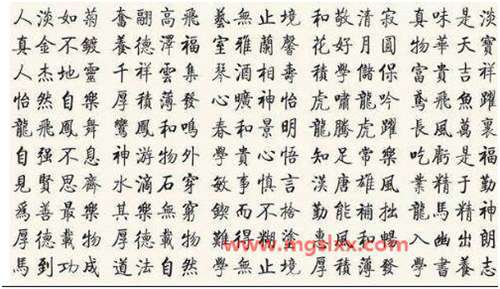 人淡如菊 奮翮高飛 藝無止境 和敬清寂 真味是淡
真金不鍍 養德澤福 室雅蘭馨 花好月圓 物華天寶
人杰地靈 千祥雲集 琴酒相壽 積學儲保 富貴吉祥
怡然自樂 厚積薄發 心曠神怡 虎嘯龍吟 鳶飛魚躍
龍飛鳳舞 鸞鳳和鳴 春和景明 龍騰虎躍 長風萬裏
自强不息 神游物外 學貴心悟 知足常樂 吃虧是福
見賢思齊 水滴石穿 敏事慎言 漢唐雄風 業精于勤
爲善最樂 其樂無窮 鍥而不捨 勤能補拙 龍馬精神
厚德載物 難得糊塗 惠風和暢 人幽出朗
馬到功成 道法自然 學無止境 厚積薄發 學書養志
www.mgslxx.com